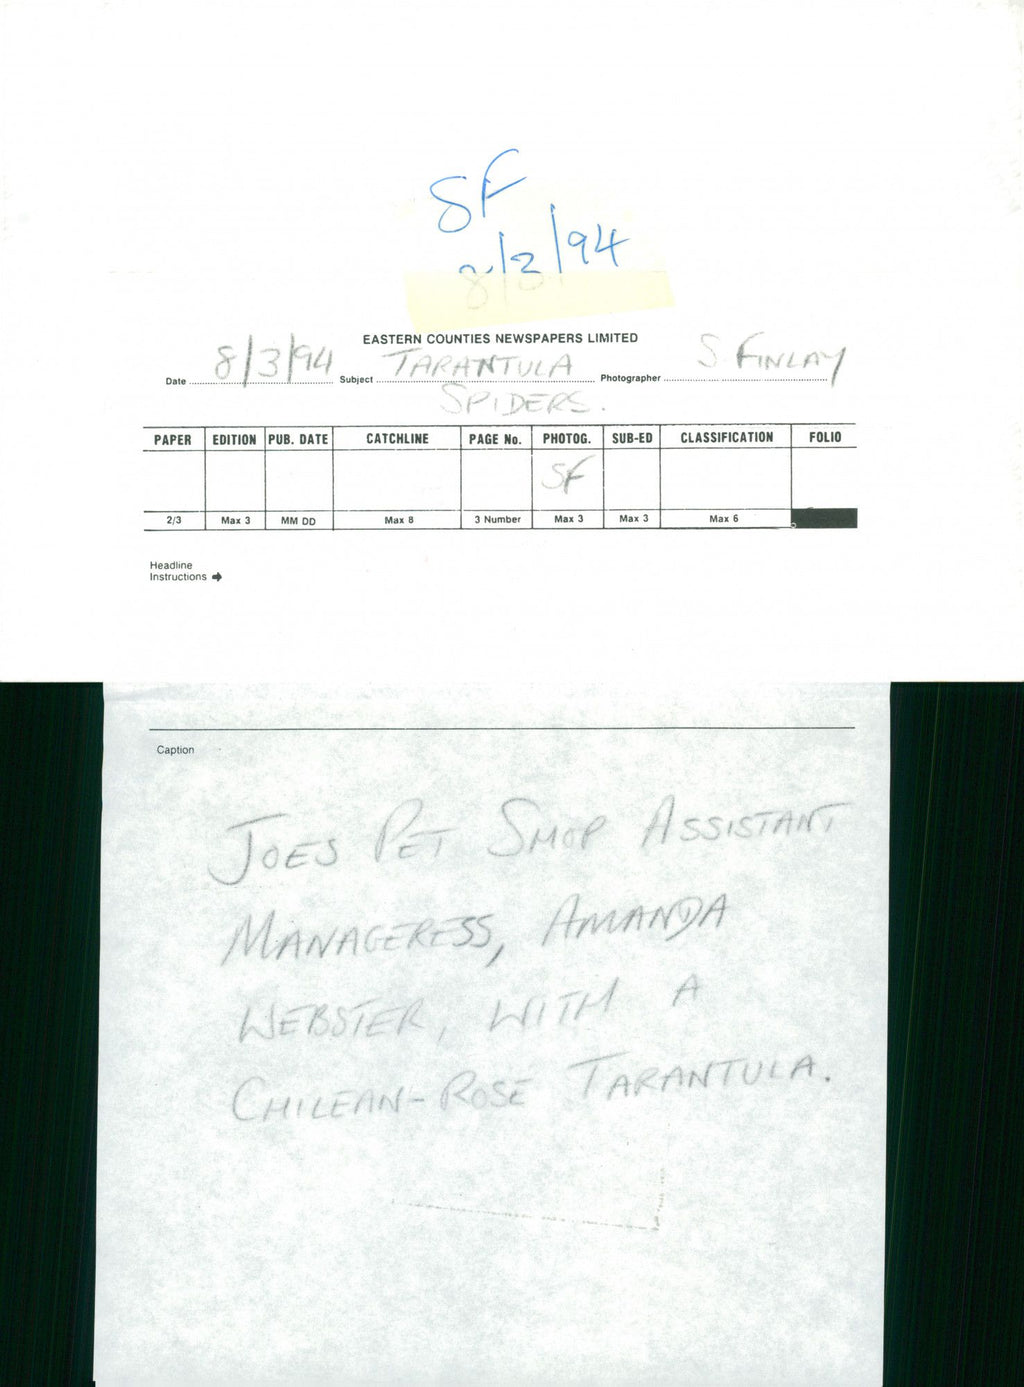 SF
8/3/94
EASTERN COUNTIES NEWSPAPERS LIMITED
Date 8/3/94 Subject TARANTULA SPIDERS. Photographer S FINLAY
PAPER EDITION PUB. DATE CATCHLINE PAGE No. PHOTOG. SUB-ED CLASSIFICATION FOLIO
SF
2/3 Max 3 MM DD Max 8 3 Number Max 3 Max 3 Max 6
Headline
Instructions
Caption
JOES PET SHOP ASSISTANT
MANAGERESS, AMANDA
WEBSTER, WITH A
CHILEAN-ROSE TARANTULA.